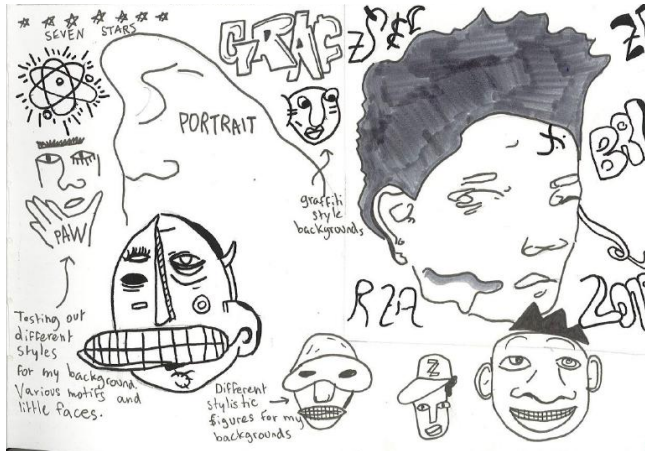 SEVEN STARS
GRAF
PORTRAIT
PAW
graffiti
style
backgrounds
Testing out
different
styles
for my background.
Various motifs and
little faces.
Different
stylistic
figures for my
backgrounds
Z
RZA